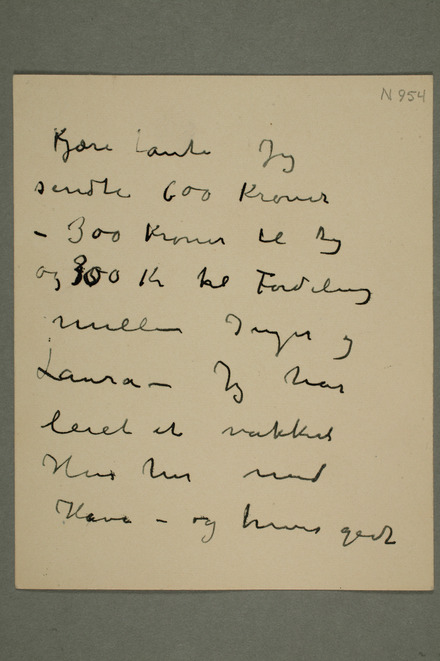 N 954
Kjære Tante Jeg
sendte 600 Kroner
– 300 Kroner til dig
og 300 Kr til Fordeling
mellem Inger og
Laura – Jeg har
leiet et vakkert
Hus her ved
Hava – og trives godt